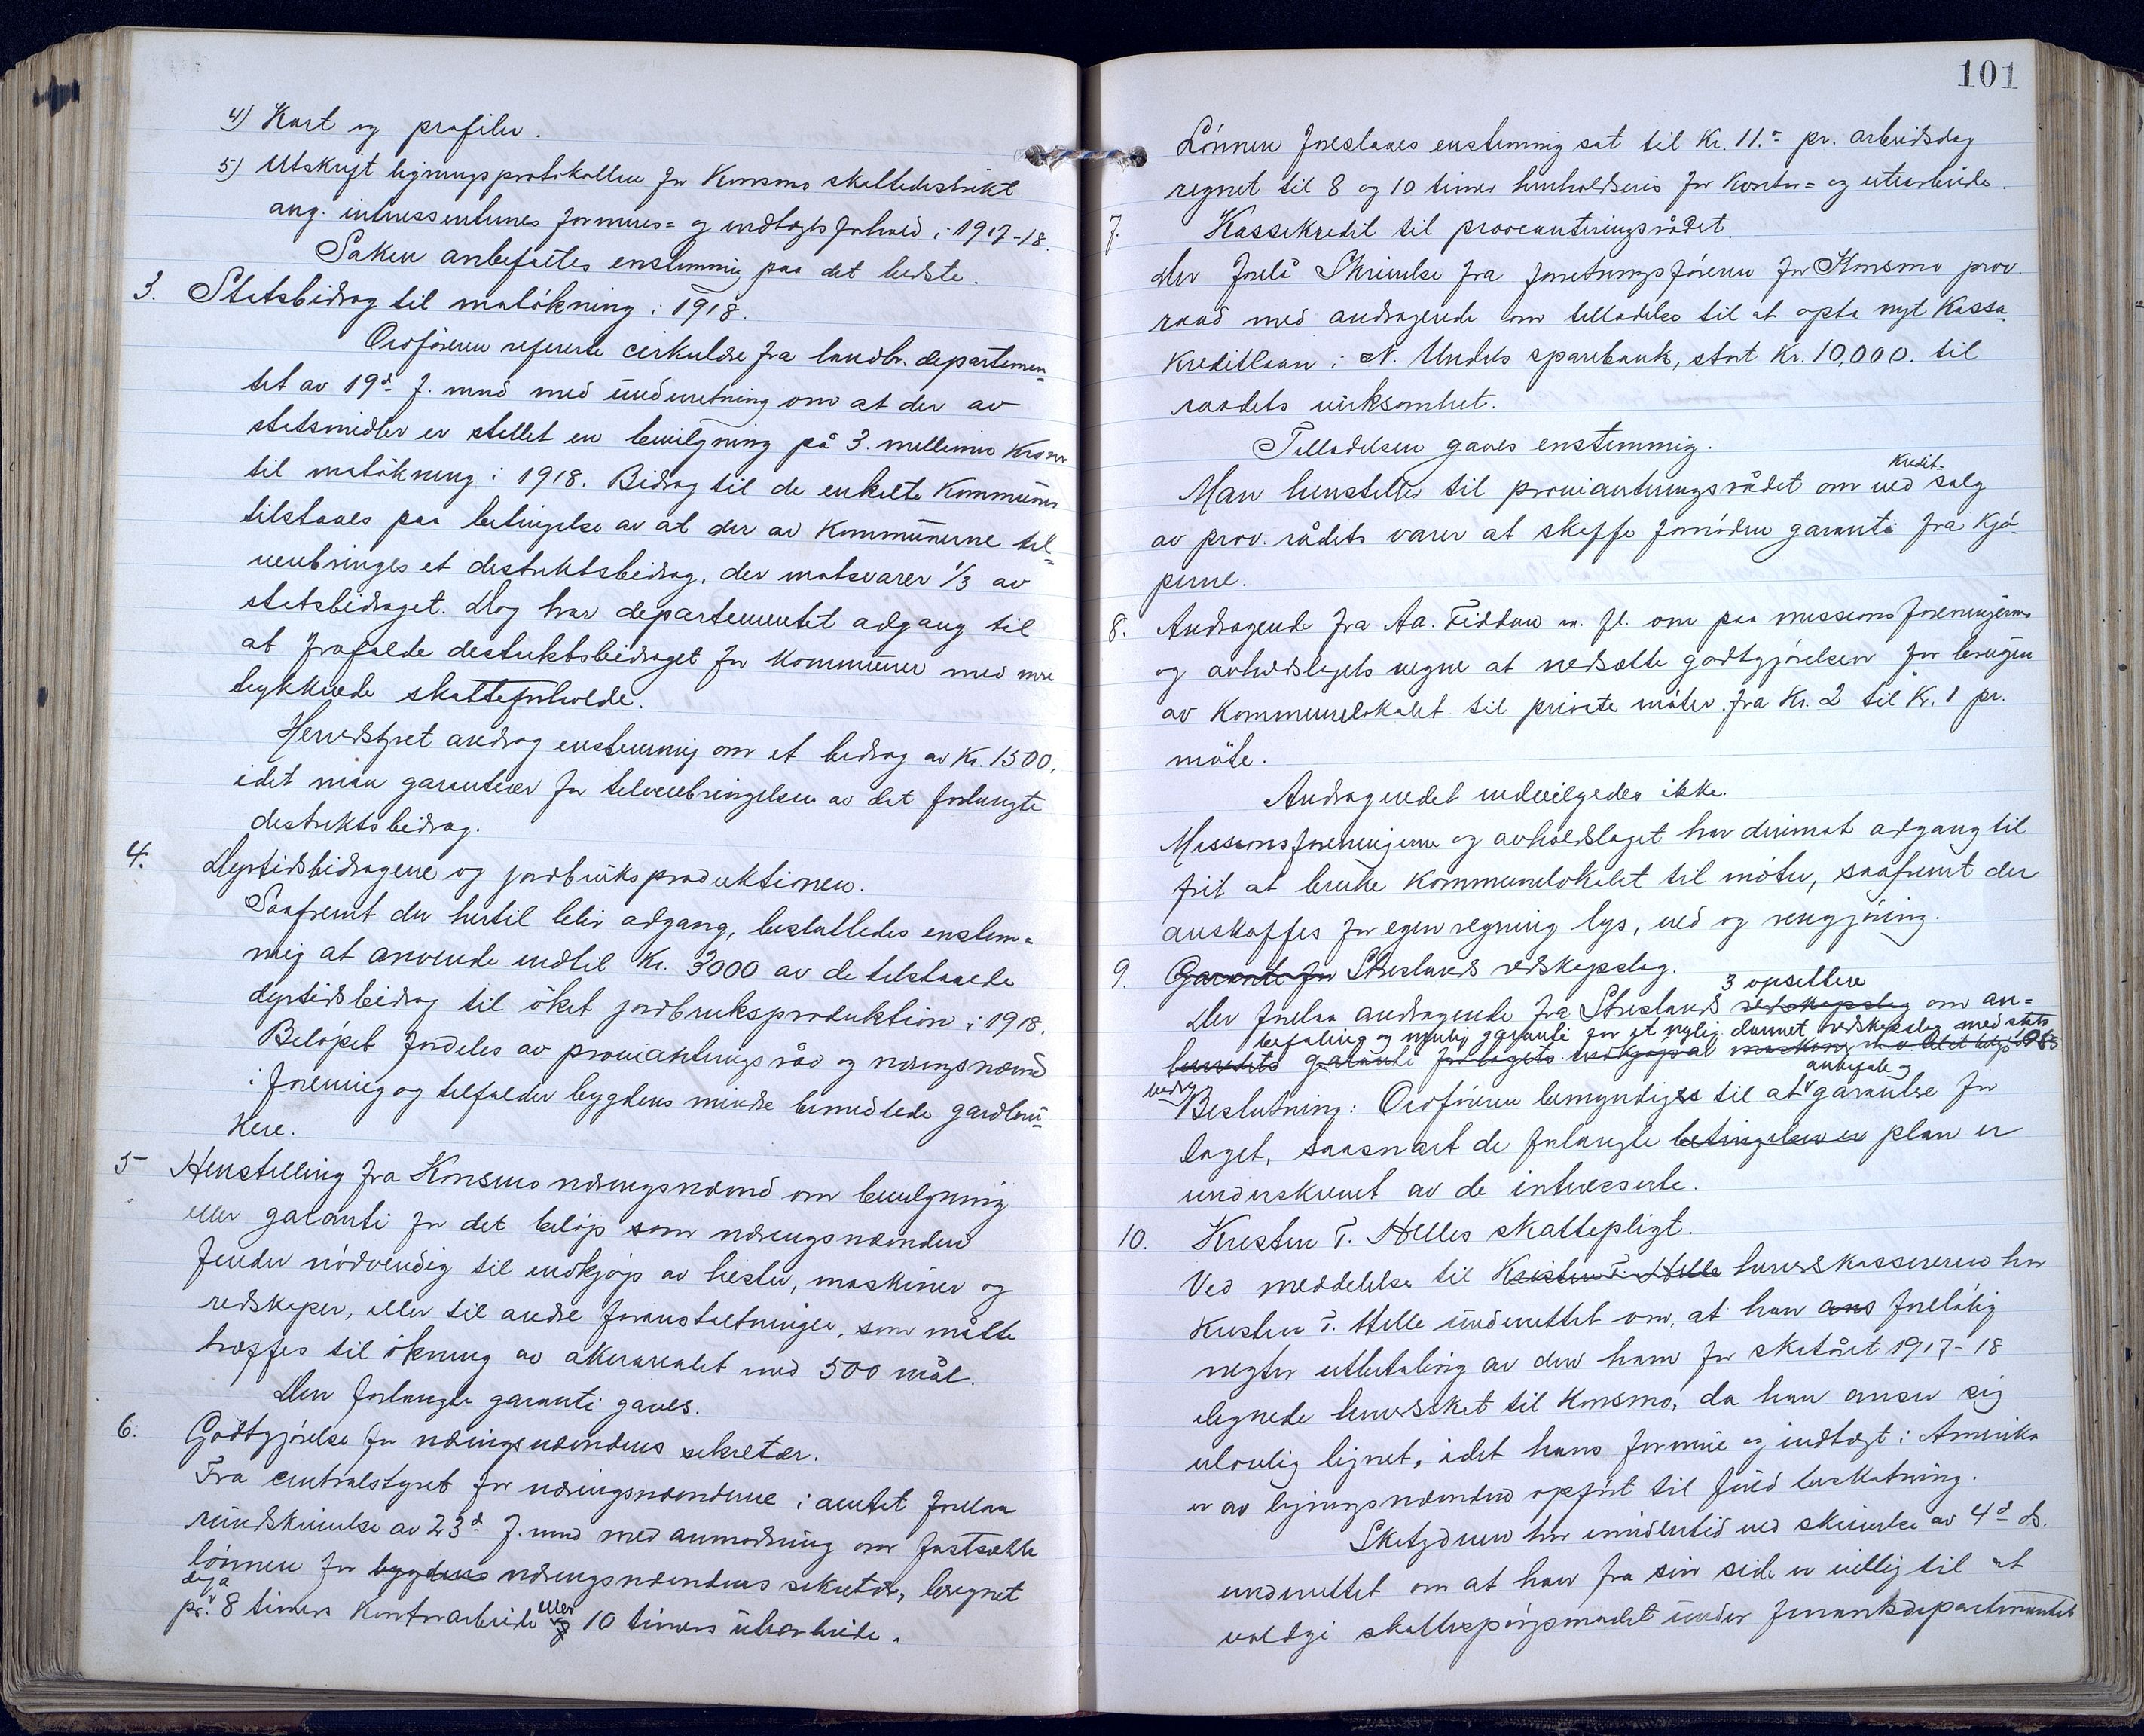 4) Kart og profiler.
5) Utskrift ligningsprotokollen for Konsmo skattedistrikt
ang. interessenternes formues= og indtægtsforhold i 1917-18.
Saken anbefaltes enstemmig paa det bedste.
3. Statsbidrag til matökning i 1918.
Ordföreren refererte cirkulære fra landbr. departemen-
tet av 19d f. mnd med underretning om at der av
statsmidler er stillet en bevilgning på 3. millioner Kroner
til matökning i 1918. Bidrag til de enkelte Kommuner
tilstaaes paa betingelse av at der av Kommunerne til-
veiebringes et distriktsbidrag, der motsvarer 1/3 av
statsbidraget. Dog har departementet adgang til
at frafalde distriktsbidraget for Kommuner med
trykkende skatteforholde.
Herredstyret androg enstemmig om et bidrag av Kr. 1500,
idet man garanterer for tilveiebringelsen av det forlangte
distriktsbidrag.
4. Dyrtidsbidragene og jordbruksproduktionen.
Saafremt der hertil blir adgang, besluttedes enstem-
mig at anvende indtil Kr. 3000 av de tilstaaede
dyrtidsbidrag til öket jordbruksproduktion i 1918.
Belöpet fordeles av provianterings råd og nævnd
i forening og tilfalder bygdens mindre bemidlede gardbru-
kere.
5 Henstilling fra Konsmo næringsnævnd om bevilgning
eller garanti for det belöp som næringsnævnden
finder nödvendig til indkjöp av hester, maskiner og
redskaper, eller til andre foranstaltninger, som måtte
træffes til ökning av akerarealet med 500 mål.
Den forlangte garanti gaves.
6. Godtgjörelse for næringsnævndens sekretær.
Fra centralstyret for næringsnævndene i amtet forelaa
rundskrivelse av 23d f. mnd med anmodning om fastsætte
lönnen for bygdens næringsnævndens sekretær, beregnet
dag a
pr. 8 timers Kontorarbeide eller og 10 timers utearbeide.
101
Lönnen foreslaaes enstemmig sat til Kr. 11.- pr. arbeidsdag
regnet til 8 og 10 timer henholdsvis for Kontor= og utearbeide.
7. Kassekredit til provianteringsrådet.
Der forelå Skrivelse fra forretningsföreren for Konsmo prov.
raad med andragende om tilladelse til at opta nyt Kassa-
kreditlaan i N. Undals sparebank, stort Kr. 10,000. til
raadets virksomhet.
Tilladelsen gaves enstemmig.
kredit-
Man henstiller til provianteringsrådet om ved salg
av prov. rådets varer at skaffe fornöden garanti fra Kjö-
perne.
8. Andragende fra Aa. Fiddan m. fl. om paa missionsforeningerne
og avholdslagets vegne at nedsætte godtgjörelsen for brugen
av Kommunelokalet til private möter fra Kr. 2 til Kr. 1 pr.
möte.
Andragendet indvilgedes ikke.
Missionsforeningerne og avholdslaget har derimot adgang til
frit at bruke Kommunelokalet til möter, saafremt der
anskaffes for egen regning lys, ved og rengjöring.
9. Garanti for Stuslands redskapslag.
3 opsittere
Der forelaa andragende fra Stuslands redskapslag om an=
befaling og mulig garanti for et nylig dannet redskapslag med stats
garanti for lagets indkjöp al maskiner m.v.
bidrag
anbefale og
Beslutning: Ordföreren bemyndiges til at garantere for
laget, saasnart de forlangte betingelser er plan er
underskrevet av de interesserte.
10. Kristen T. Helles skattepligt.
Ved meddelelse til Kristen T. Helle herredskassereren har
Kristen T. Helle underrettet om, at han ans forelöbig
negter utbetaling av den ham for skatåret 1917-18
ilignede herredskat til Konsmo, da han anser sig
ulovlig lignet, idet hans formue og indtægt i Amerika
er av ligningsnævnden opfört til fuld beskatning.
Skatyderen har imidlertid ved skrivelse av 4d ds.
underrettet om at han fra sin side er villig til at
voldgi skattespörgsmaalet under finansdepartementet